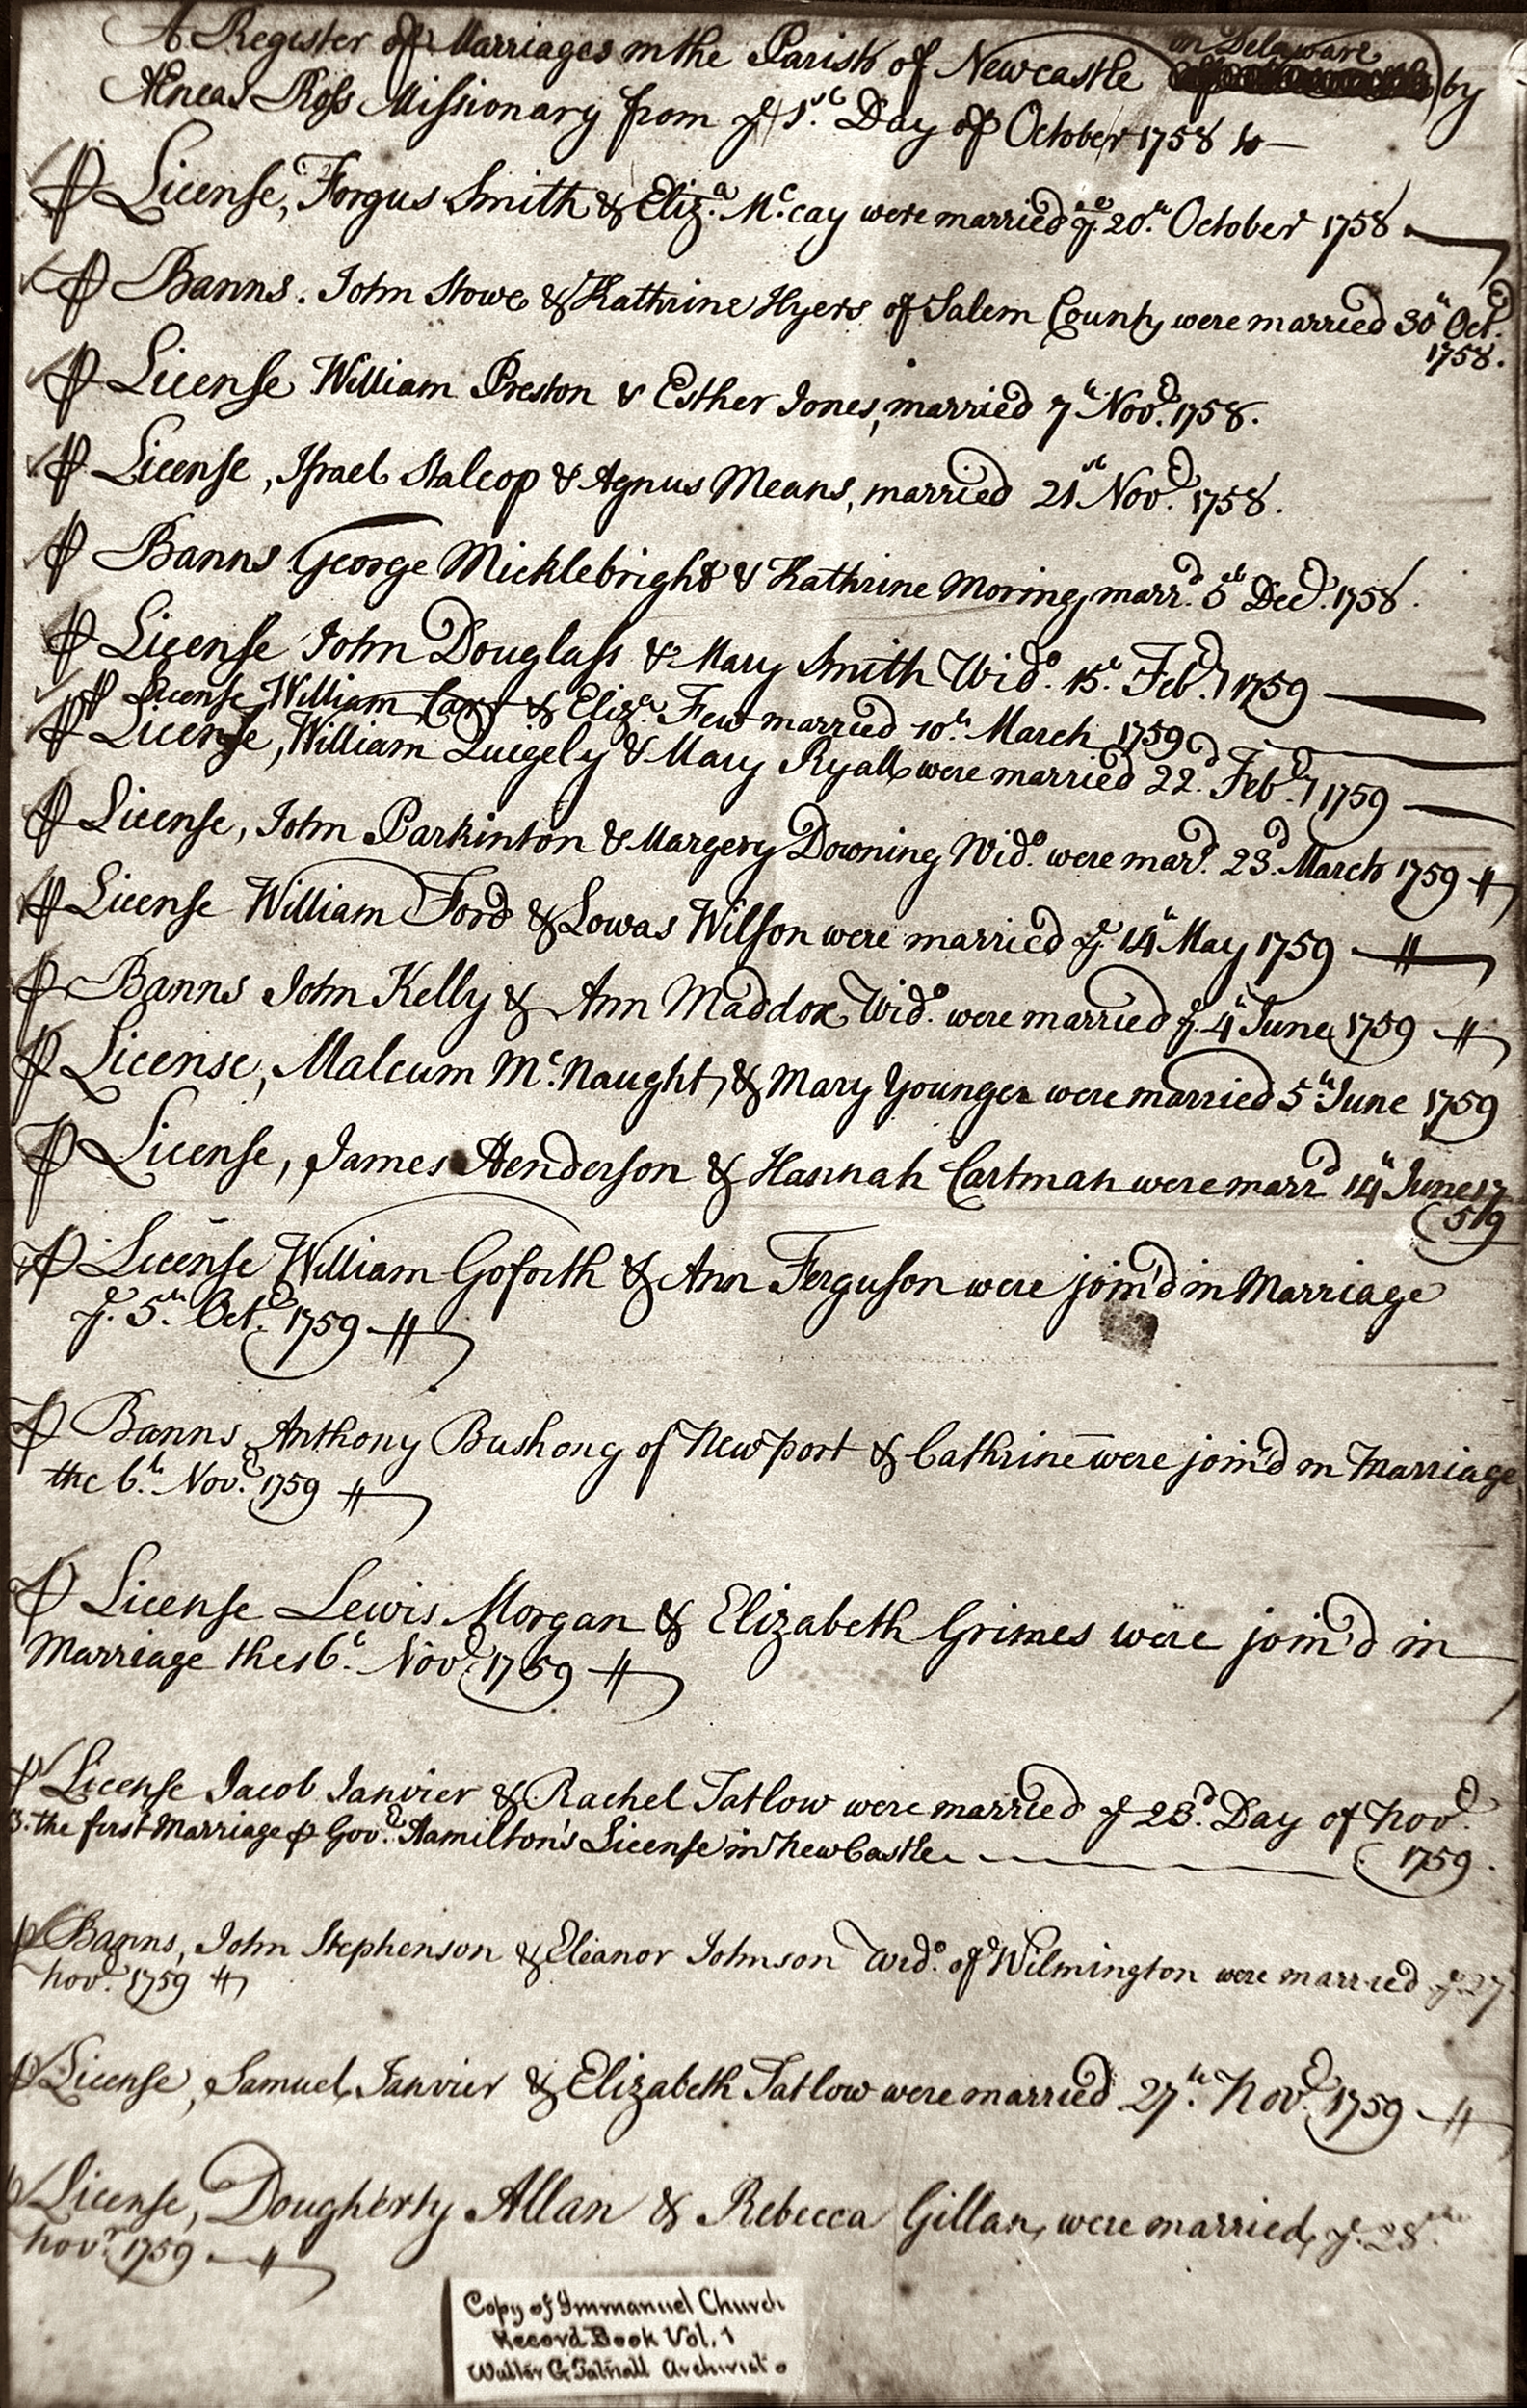 A Register of Marriages in the Parish of Newcastle on Delaware by
Æneas Ross Missionary from ye 1st. Day of October 1758 to —
⅌ License, Forgus Smith & Eliza. Mc.cay were married ye. 20th. October 1758.
⅌ Banns. John Stowe & Kathrine Hyers of Salem County were married 30th Octr.
1758.
⅌ License William Preston & Esther Jones, married 7th Novr. 1758.
⅌ License, Israel Stalcop & Agnus Means, married 21st Novr. 1758.
⅌ Banns George Micklebright & Kathrine Moring, marrd. 5th Decr. 1758.
⅌ License John Douglass & Mary Smith Wido. 15th. Feby. 1759 —
⅌ License William Carr & Eliza. Few married 10th. March 1759
⅌ License, William Quigely & Mary Ryall were married 22d. Feby. 1759 —
⅌ License, John Parkinton & Margery Downing Wido. were mard. 23d. March 1759
⅌ License William Ford & Lowas Wilson were married ye 14th May 1759
⅌ Banns John Kelly & Ann Maddox Wido. were married ye. 4th June 1759
⅌ License, Malcum Mc.Naught, & Mary Younger were married 5th June 1759
⅌ License, James Henderson & Hannah Cartman were marrd 14th June 17
59
⅌ License William Goforth & Ann Ferguson were join'd in Marriage
ye. 5th. Octr. 1759
⅌ Banns Anthony Bushong of Newport & Cathrine — were join'd in Marriage
the 6th. Novr. 1759
⅌ License Lewis Morgan & Elizabeth Grimes were join'd in
Marriage the 16th. Novr. 1759
⅌ License Jacob Janvier & Rachel Tatlow were married ye 23d. Day of Novr.
B. the first Marriage ⅌ Govr. Hamilton's License in New Castle — 1759.
⅌ Banns, John Stephenson & Eleanor Johnson Wido. of Wilmington were married ye 27
Novr. 1759
⅌ License, Samuel Janvier & Elizabeth Tatlow were married 27th. Novr. 1759
⅌ License, Dougherty Allan & Rebecca Gillan, were married, ye. 28th
Novr. 1759
Copy of Immanuel Church
Record Book Vol. 1
Walter G Tatnall Archivist